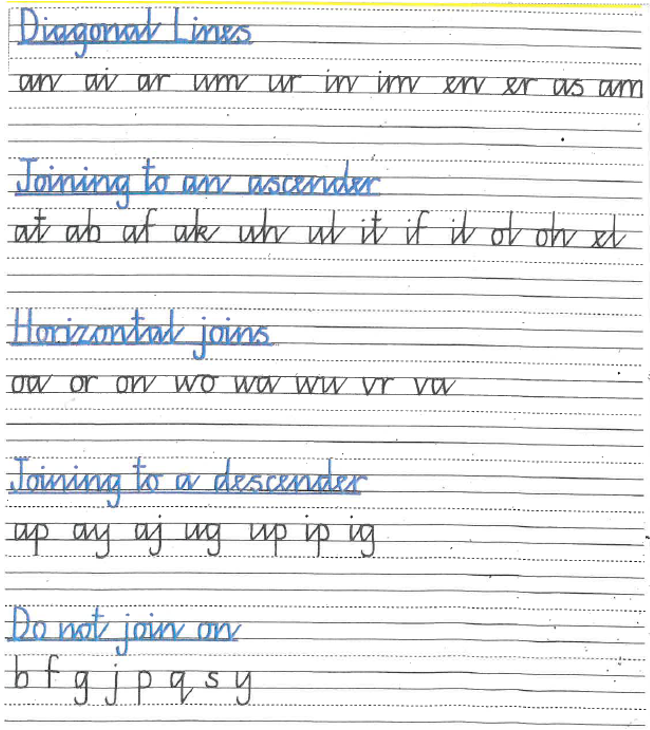 Diagonal Lines
an ai ar um ur in im en er as am
Joining to an ascender
at ab af ak uh ul it if il ol oh el
Horizontal joins
oa or on wo wa wu vr va
Joining to a descender
ap ay aj ug up ip ig
Do not join on
b f g j p q s y